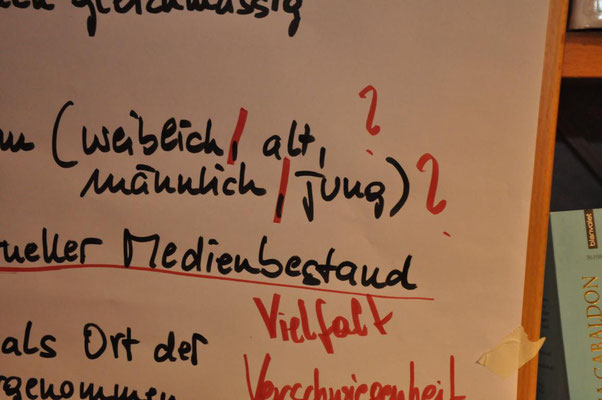 gleichmässig
(weiblich, / alt, ?
männlich, / jung) ?
ueller Medienbestand
Vielfalt
als Ort der
Verschwiegenheit
rgenommen
blanvalet
GABALDON